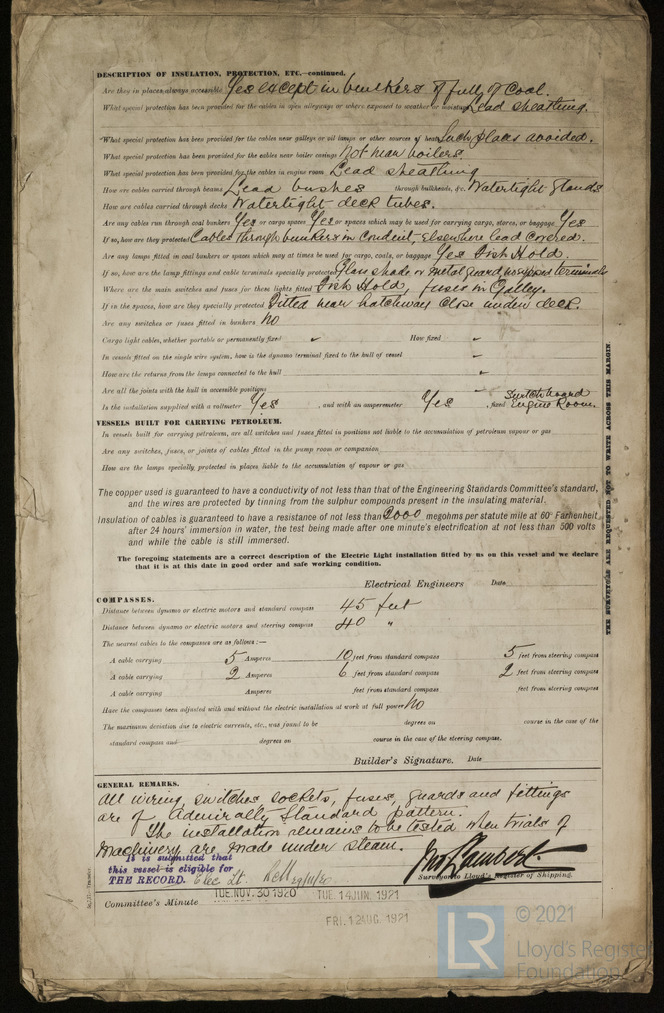 DESCRIPTION OF INSULATION, PROTECTION, ETC.—continued.
Are they in places always accessible Yes except in bunkers if full of Coal.
What special protection has been provided for the cables in open alleyways or where exposed to weather or moisture Lead sheathing.
What special protection has been provided for the cables near galleys or oil lamps or other sources of heat Such places avoided.
What special protection has been provided for the cables near boiler casings Not near boilers
What special protection has been provided for the cables in engine room Lead sheathing
How are cables carried through beams Lead bushes through bulkheads, &c. Watertight glands
How are cables carried through decks Watertight deck tubes.
Are any cables run through coal bunkers Yes or cargo spaces Yes or spaces which may be used for carrying cargo, stores, or baggage Yes
If so, how are they protected Cables through bunkers in conduit, elsewhere lead covered.
Are any lamps fitted in coal bunkers or spaces which may at times be used for cargo, coals, or baggage Yes Fish Hold.
If so, how are the lamp fittings and cable terminals specially protected Glass shade or metal guard, terminals
Where are the main switches and fuses for these lights fitted Fish Hold, fuses in Galley.
If in the spaces, how are they specially protected Fitted near hatchway close under deck.
Are any switches or fuses fitted in bunkers No
Cargo light cables, whether portable or permanently fixed ✓ How fixed ✓
In vessels fitted on the single wire system, how is the dynamo terminal fixed to the hull of vessel ✓
How are the returns from the lamps connected to the hull ✓
Are all the joints with the hull in accessible positions ✓
Is the installation supplied with a voltmeter Yes , and with an amperemeter Yes , fixed Switchboard Engine Room.
VESSELS BUILT FOR CARRYING PETROLEUM.
In vessels built for carrying petroleum, are all switches and fuses fitted in positions not liable to the accumulation of petroleum vapour or gas
Are any switches, fuses, or joints of cables fitted in the pump room or companion
How are the lamps specially protected in places liable to the accumulation of vapour or gas
The copper used is guaranteed to have a conductivity of not less than that of the Engineering Standards Committee's standard,
and the wires are protected by tinning from the sulphur compounds present in the insulating material.
Insulation of cables is guaranteed to have a resistance of not less than 2000 megohms per statute mile at 60° Farhenheit
after 24 hours' immersion in water, the test being made after one minute's electrification at not less than 500 volts
and while the cable is still immersed.
The foregoing statements are a correct description of the Electric Light installation fitted by us on this vessel and we declare
that it is at this date in good order and safe working condition.
Electrical Engineers Date
COMPASSES.
Distance between dynamo or electric motors and standard compass 45 feet
Distance between dynamo or electric motors and steering compass 40 "
The nearest cables to the compasses are as follows:—
A cable carrying 5 Amperes 10 feet from standard compass 5 feet from steering compass
A cable carrying 2 Amperes 6 feet from standard compass 2 feet from steering compass
A cable carrying Amperes feet from standard compass feet from steering compass
Have the compasses been adjusted with and without the electric installation at work at full power No
The maximum deviation due to electric currents, etc., was found to be degrees on course in the case of the
standard compass and degrees on course in the case of the steering compass.
Builder's Signature. Date
GENERAL REMARKS.
All wiring, switches sockets, fuses, guards and fittings
are of Admiralty Standard pattern.
The installation remains to be tested when trials of
Machinery are made under steam.
It is submitted that
this vessel is eligible for
THE RECORD. Elec. Lt.
Surveyor to Lloyd's Register of Shipping.
Committee's Minute TUE. NOV. 30 1920 TUE. 14 JUN. 1921
FRI. 12 AUG. 1921
THE SURVEYORS ARE REQUESTED NOT TO WRITE ACROSS THIS MARGIN
LR
© 2021
Lloyd's Register
Foundation